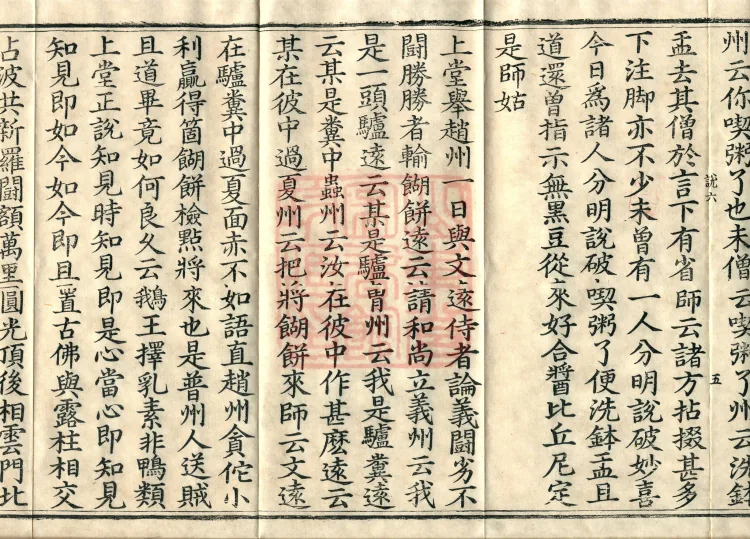 州云你喫粥了也未僧云喫粥了州云洗鉢
說六
五
盂去其僧於言下有省師云諸方拈掇甚多
下注脚亦不少未曾有一人分明說破妙喜
今日爲諸人分明說破喫粥了便洗鉢盂且
道還曾指示無黑豆從來好合醬比丘尼定
是師姑
上堂舉趙州一日與文遠侍者論義鬪劣不
鬪勝勝者輸餬餅遠云請和尚立義州云我
是一頭驢遠云某是驢胄州云我是驢糞遠
云某是糞中蟲州云汝在彼中作甚麽遠云
某在彼中過夏州云把將餬餅來師云文遠
在驢糞中過夏面赤不如語直趙州貪佗小
利贏得箇餬餅檢點將來也是普州人送賊
且道畢竟如何良久云鵝王擇乳素非鴨類
上堂正說知見時知見即是心當心即知見
知見即如今如今即且置古佛與露柱相交
占波共新羅鬪額萬里圓光頂後相雲門北